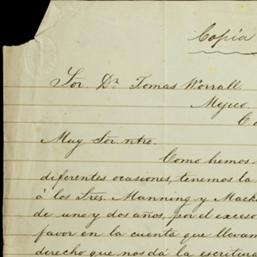 Copia
Sor. Dn. Tomas Worrall.
Mejico
Muy Sor. ntro.
Como hemos
diferentes ocasiones, tenemos la
á los Sres. Manning y Mack
de uno y dos años, por el exceso
favor en la cuenta que llevam
derecho que nos dá la escritura